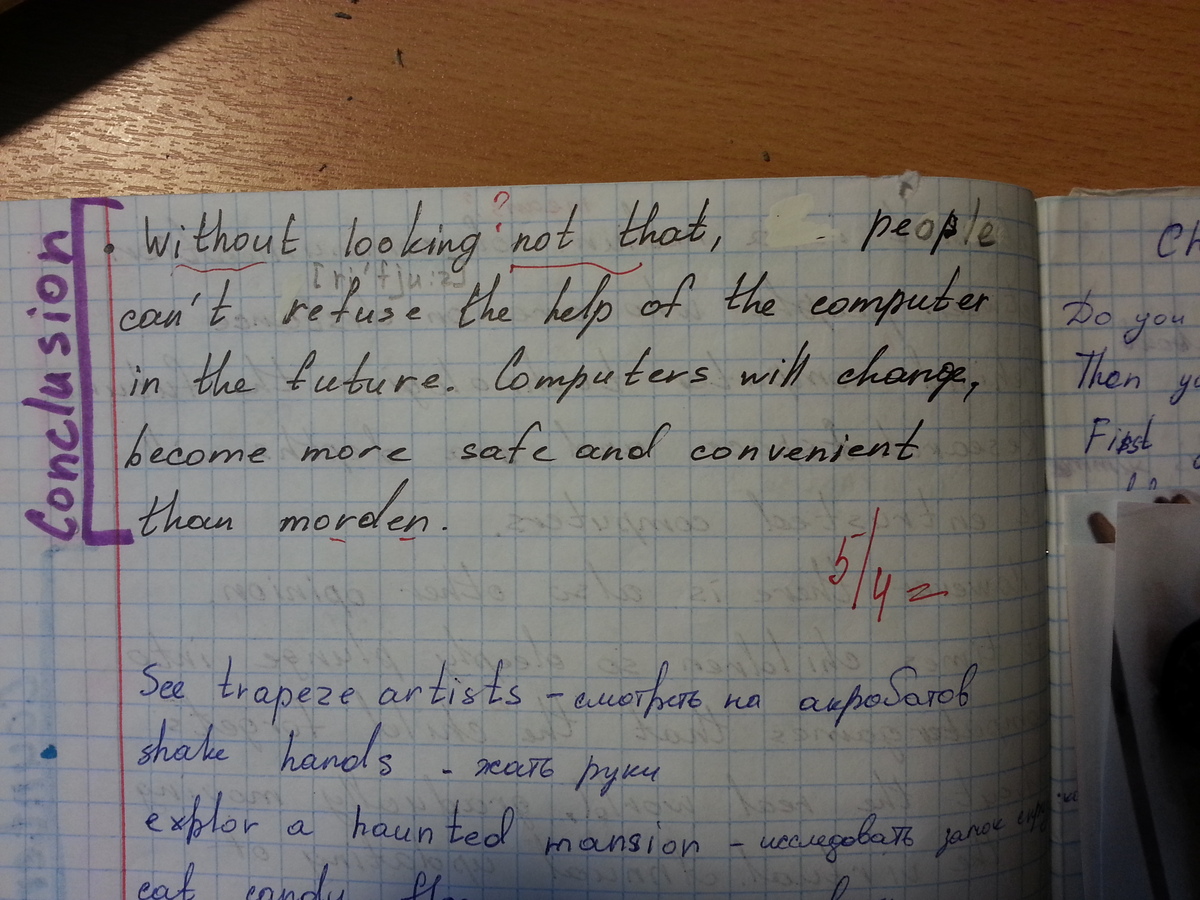 Conclusion
?
. Without looking not that, people
can't refuse the help of the computer
in the future. Computers will change,
become more safe and convenient
than morden.
5/4=
See trapeze artists - смотреть на акробатов
shake hands - жать руки
explor a haunted mansion - исследовать замок
eat candy
Do you
Than
First